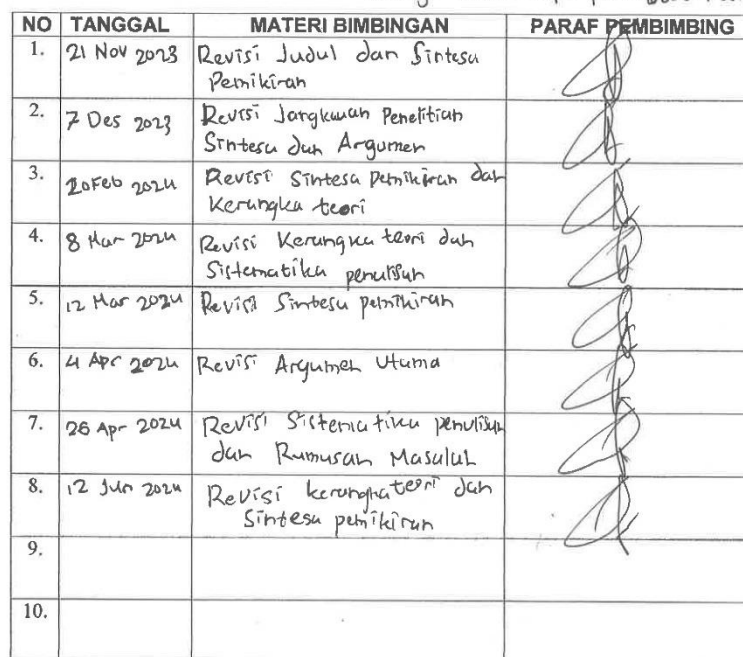 NO TANGGAL MATERI BIMBINGAN PARAF PEMBIMBING
1. 21 Nov 2023 Revisi Judul dan Sintesa
Pemikiran
2. 7 Des 2023 Revisi Jangkauan Penelitian
Sintesa dan Argumen
3. 20 Feb 2024 Revisi Sintesa Pemikiran dan
Kerangka teori
4. 8 Mar 2024 Revisi Kerangka teori dan
Sistematika penulisan
5. 12 Mar 2024 Revisi Sintesa pemikiran
6. 4 Apr 2024 Revisi Argumen Utama
7. 26 Apr 2024 Revisi Sistematika penulisan
dan Rumusan Masalah
8. 12 Jun 2024 Revisi kerangka teori dan
Sintesa pemikiran
9.
10.